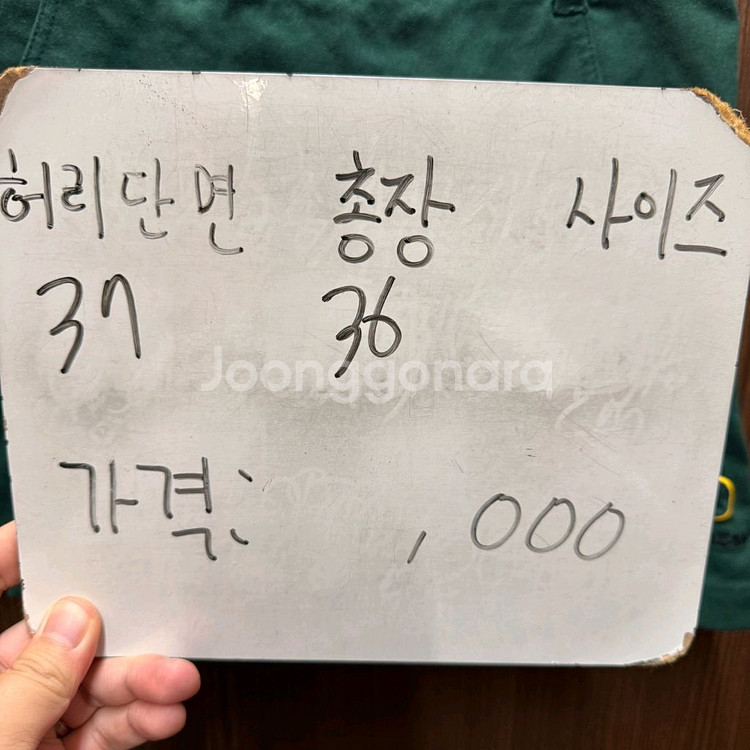 허리단면 총장 사이즈
37 36
Joonggonara
가격: ,000